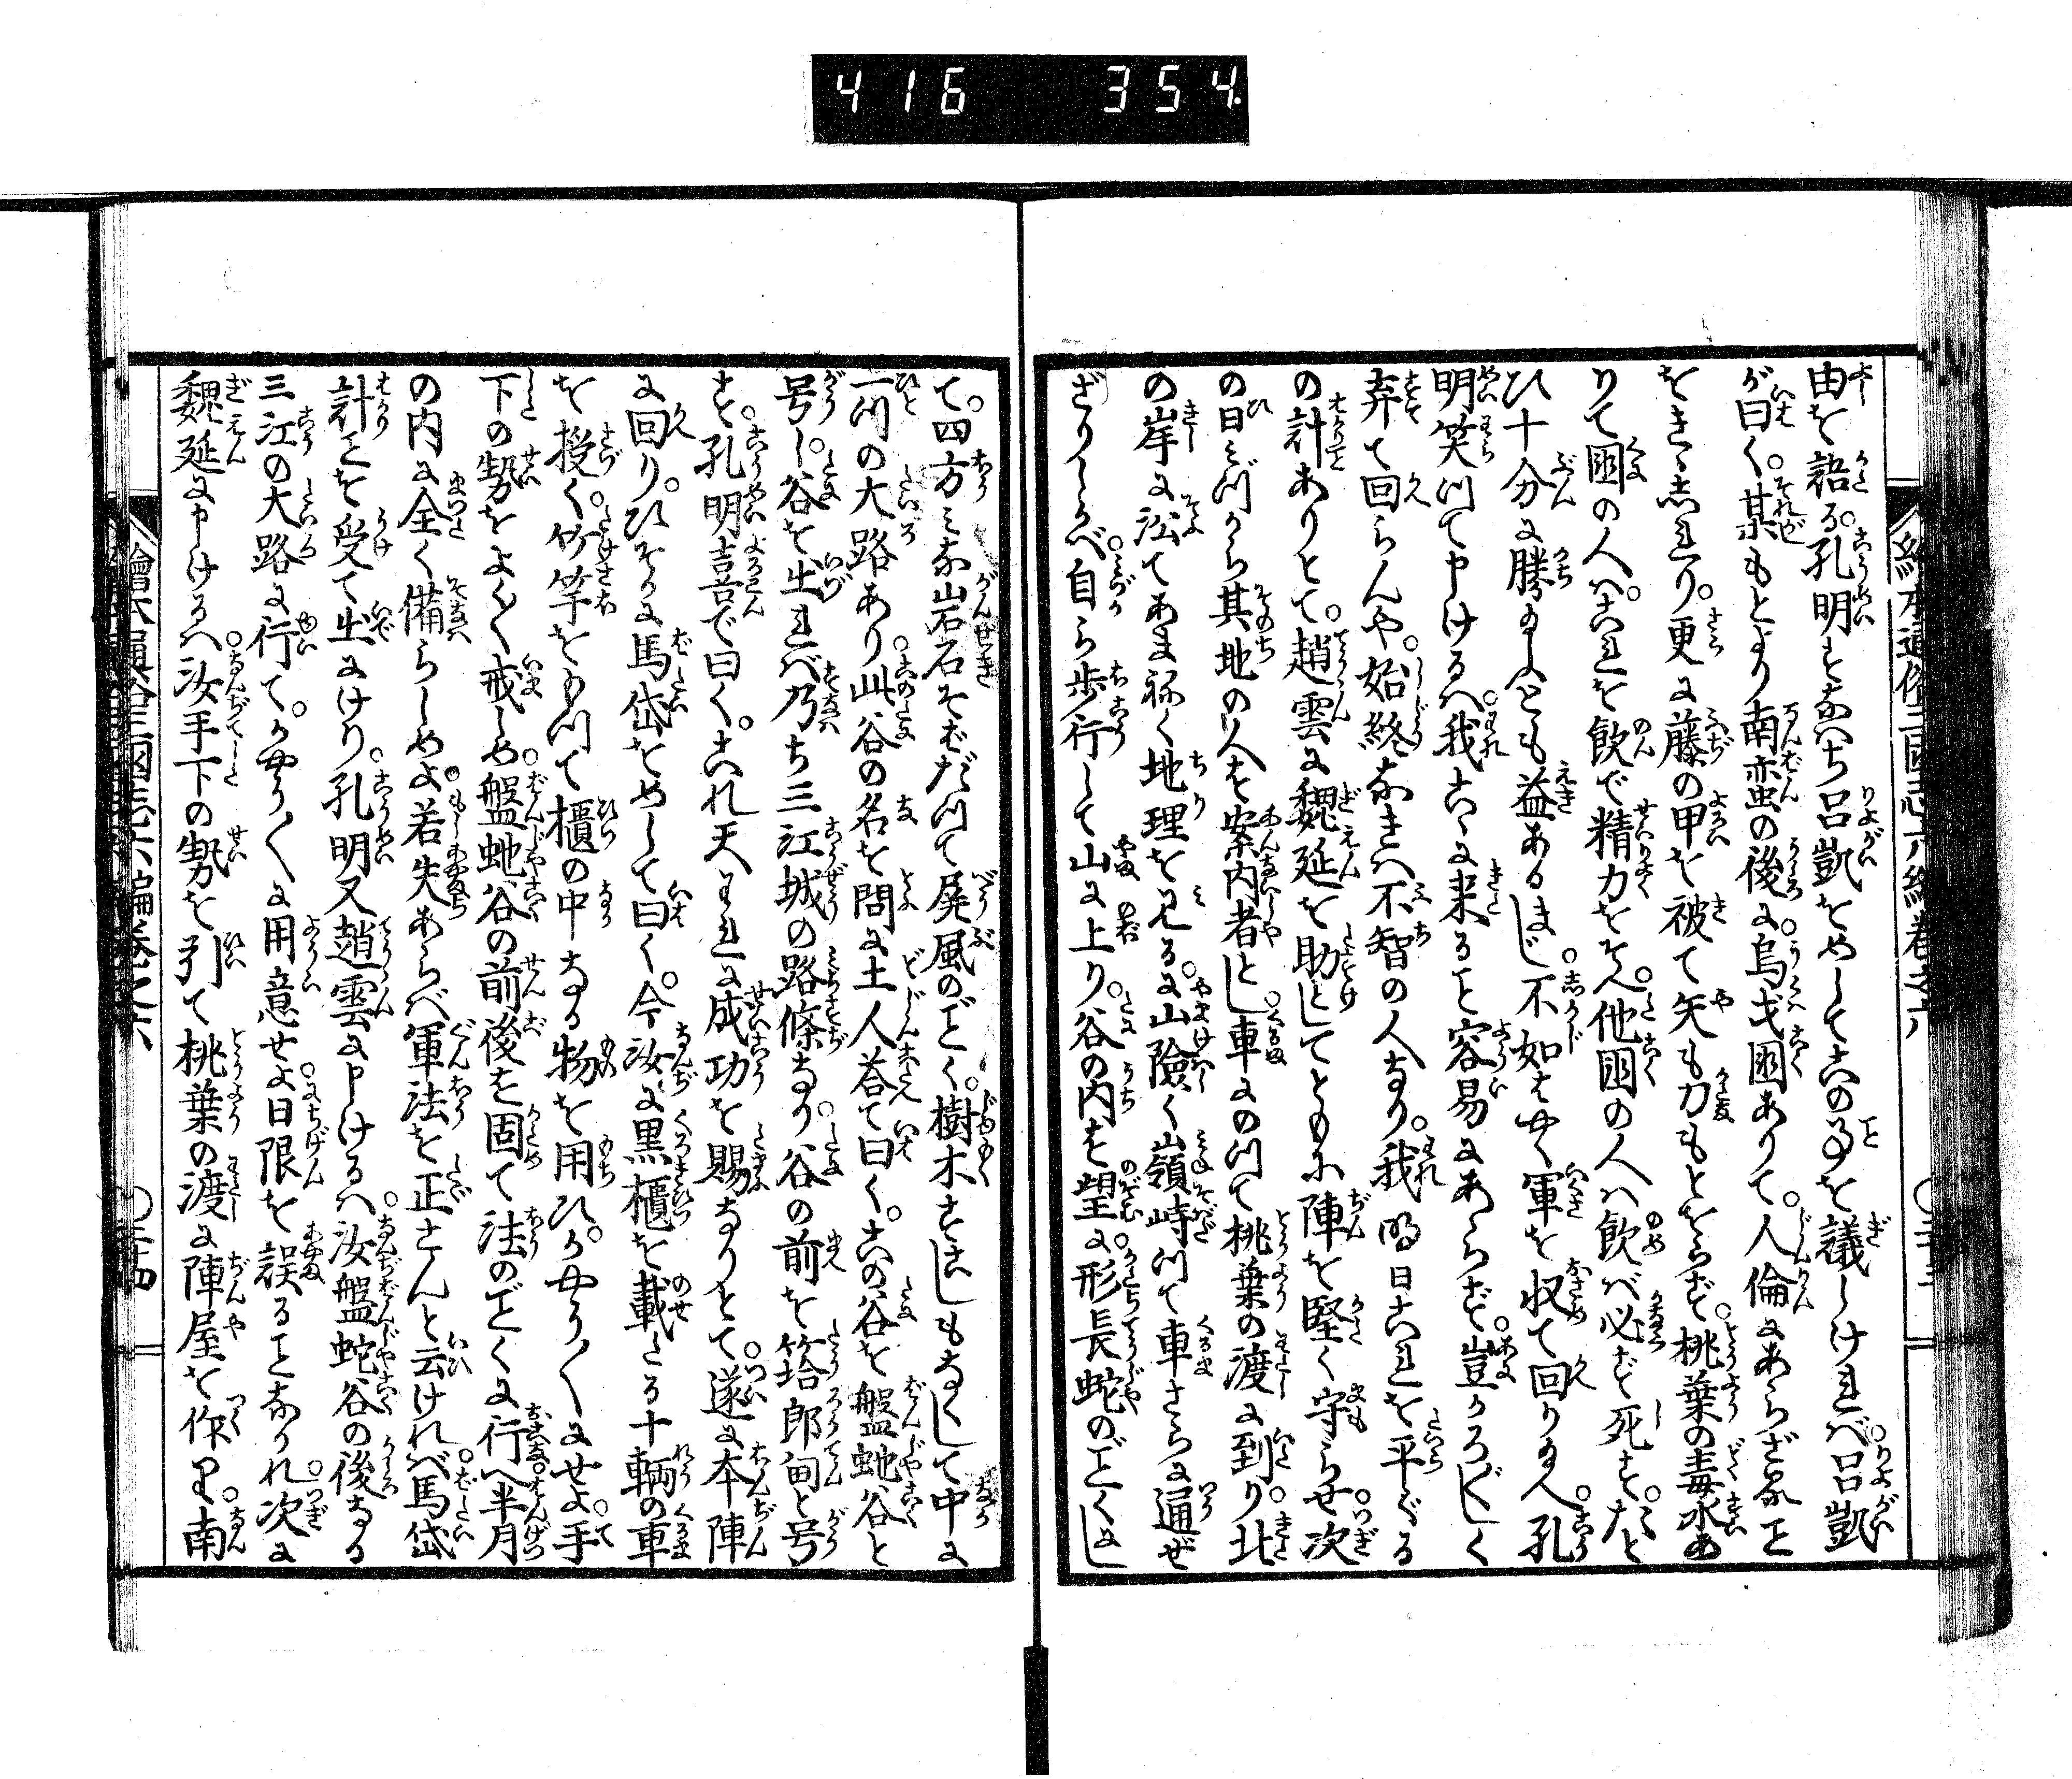 416 354.
繪本通俗三國志六編卷之六
由を語る。孔明すなはち呂凱をめして此の事を議しければ。呂凱
が曰く。某もとより南蛮の後に。烏戈国ありて。人倫にあらざるヿ
をきゝ志れり。更に藤の甲を被て矢も刀もとをらず。桃葉の毒水あ
りて国の人は。これを飲で精力をそへ。他国の人は飲ば必ず死す。たと
ひ十分に勝給ふとも益あるまじ。不如はやく軍を収て回り給へ。孔
明笑つて申けるは。我こゝに来るヿ容易にあらず。豈かろ〴〵しく
弃て回らんや。始終なきは不智の人なり。我明日これを平ぐる
の計ありとて。趙雲に魏延を助としてともに陣を堅く守らせ。次
の日みづから其地の人を案内者とし。車にのつて桃葉の渡に到り。北
の岸に沿てあまねく地理を見るに。山険く嶺峙つて車さらに通ぜ
ざりしかば。自ら歩行して山に上り。谷の内を望に。形長蛇のごとくにし
て。四方みな岩石そばだつて屏風のごとく。樹木すこしもなくして中に
一つの大路あり。此谷の名を問に土人荅て曰く。此の谷を盤虵谷と
号し。谷を出れば乃ち三江城の路條なり。谷の前を塔郎甸と号
す。孔明喜で曰く。これ天われに成功を賜なりとて。遂に本陣
に回り。ひそかに馬岱をめして曰く。今汝に黒櫃を載たる十輌の車
を授く。竹竿をもつて櫃の中なる物を用ひ。かやう〳〵にせよ。手
下の勢をよく〳〵戒しめ。盤虵谷の前後を固て法のごとくに行へ。半月
の内に全く備らしめよ。若失あらば軍法を正さんと云ければ。馬岱
計ヿを受て出にけり。孔明又趙雲に申けるは。汝盤蛇谷の後なる
三江の大路に行て。かやう〳〵に用意せよ。日限を誤るヿなかれ。次に
魏延に申けるは。汝手下の勢を引て桃葉の渡に陣屋を作り。南
繪本通俗三國志六編卷之六